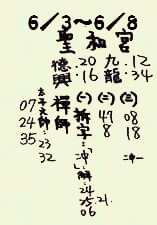 6/3~6/8
聖和宮
德興 20.16
九龍 12.34
禪師
太子大師:
07 24 35
23 32
(一) 拆字:"冲"解:24 25 06 21
(二) 47 8
(三) 08 18